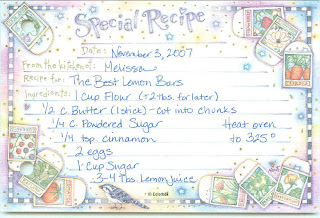 Special Recipe
Date: November 3, 2007
From the kitchen of: Melissa
Recipe for: The Best Lemon Bars
Ingredients: 1 Cup Flour (+2 tbs. for later)
1/2 c. Butter (1 stick) - Cut into chunks
1/4 c. Powdered Sugar Heat oven
1/4 tsp. cinnamon to 325°
2 eggs
1 Cup Sugar
3-4 Tbs. Lemon Juice